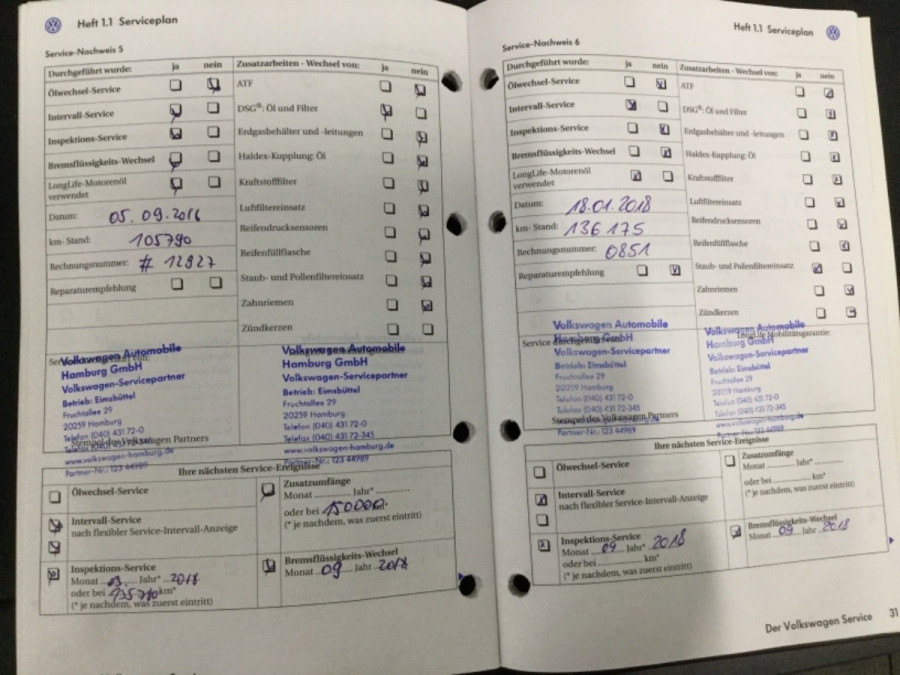 Heft 1.1 Serviceplan
Service-Nachweis 5
Durchgeführt wurde: ja nein
Ölwechsel-Service
Intervall-Service
Inspektions-Service
Bremsflüssigkeits-Wechsel
LongLife-Motorenöl
verwendet
Datum: 05.09.2016
km-Stand: 105790
Rechnungsnummer: # 12827
Reparaturempfehlung
Zusatzarbeiten - Wechsel von: ja nein
ATF
DSG®: Öl und Filter
Erdgasbehälter und -leitungen
Haldex-Kupplung: Öl
Kraftstofffilter
Luftfiltereinsatz
Reifendrucksensoren
Reifenfüllflasche
Staub- und Pollenfiltereinsatz
Zahnriemen
Zündkerzen
Volkswagen Automobile
Hamburg GmbH
Volkswagen-Servicepartner
Betrieb: Eimsbüttel
Fruchtallee 29
20259 Hamburg
Telefon (040) 431 72-0
Telefax (040) 431 72-345
www.volkswagen-hamburg.de
Partner-Nr.: 123 44989
Stempel des Volkswagen Partners
Volkswagen Automobile
Hamburg GmbH
Volkswagen-Servicepartner
Betrieb: Eimsbüttel
Fruchtallee 29
20259 Hamburg
Telefon (040) 431 72-0
Telefax (040) 431 72-345
www.volkswagen-hamburg.de
Partner-Nr.: 123 44989
Ihre nächsten Service-Ereignisse
Ölwechsel-Service
Intervall-Service
nach flexibler Service-Intervall-Anzeige
Inspektions-Service
Monat 09 Jahr* 2018
oder bei 135790 km*
(* je nachdem, was zuerst eintritt)
Zusatzumfänge
Monat Jahr*
oder bei 150000
(* je nachdem, was zuerst eintritt)
Bremsflüssigkeits-Wechsel
Monat 09 Jahr 2018
Heft 1.1 Serviceplan
Service-Nachweis 6
Durchgeführt wurde: ja nein
Ölwechsel-Service
Intervall-Service
Inspektions-Service
Bremsflüssigkeits-Wechsel
LongLife-Motorenöl
verwendet
Datum: 18.01.2018
km-Stand: 136175
Rechnungsnummer: 0851
Reparaturempfehlung
Zusatzarbeiten - Wechsel von: ja nein
ATF
DSG®: Öl und Filter
Erdgasbehälter und -leitungen
Haldex-Kupplung: Öl
Kraftstofffilter
Luftfiltereinsatz
Reifendrucksensoren
Reifenfüllflasche
Staub- und Pollenfiltereinsatz
Zahnriemen
Zündkerzen
Service durchgeführt von:
Volkswagen Automobile
Hamburg GmbH
Volkswagen-Servicepartner
Betrieb: Eimsbüttel
Fruchtallee 29
20259 Hamburg
Telefon (040) 431 72-0
Telefax (040) 431 72-345
www.volkswagen-hamburg.de
Partner-Nr.: 123 44989
Stempel des Volkswagen Partners
LongLife Mobilitätsgarantie:
Volkswagen Automobile
Hamburg GmbH
Volkswagen-Servicepartner
Betrieb: Eimsbüttel
Fruchtallee 29
20259 Hamburg
Telefon (040) 431 72-0
Telefax (040) 431 72-345
www.volkswagen-hamburg.de
Partner-Nr.: 123 44989
Ihre nächsten Service-Ereignisse
Ölwechsel-Service
Intervall-Service
nach flexibler Service-Intervall-Anzeige
Inspektions-Service
Monat 09 Jahr* 2018
oder bei km*
(* je nachdem, was zuerst eintritt)
Zusatzumfänge
Monat Jahr*
oder bei km*
(* je nachdem, was zuerst eintritt)
Bremsflüssigkeits-Wechsel
Monat 09 Jahr 2018
Der Volkswagen Service 31